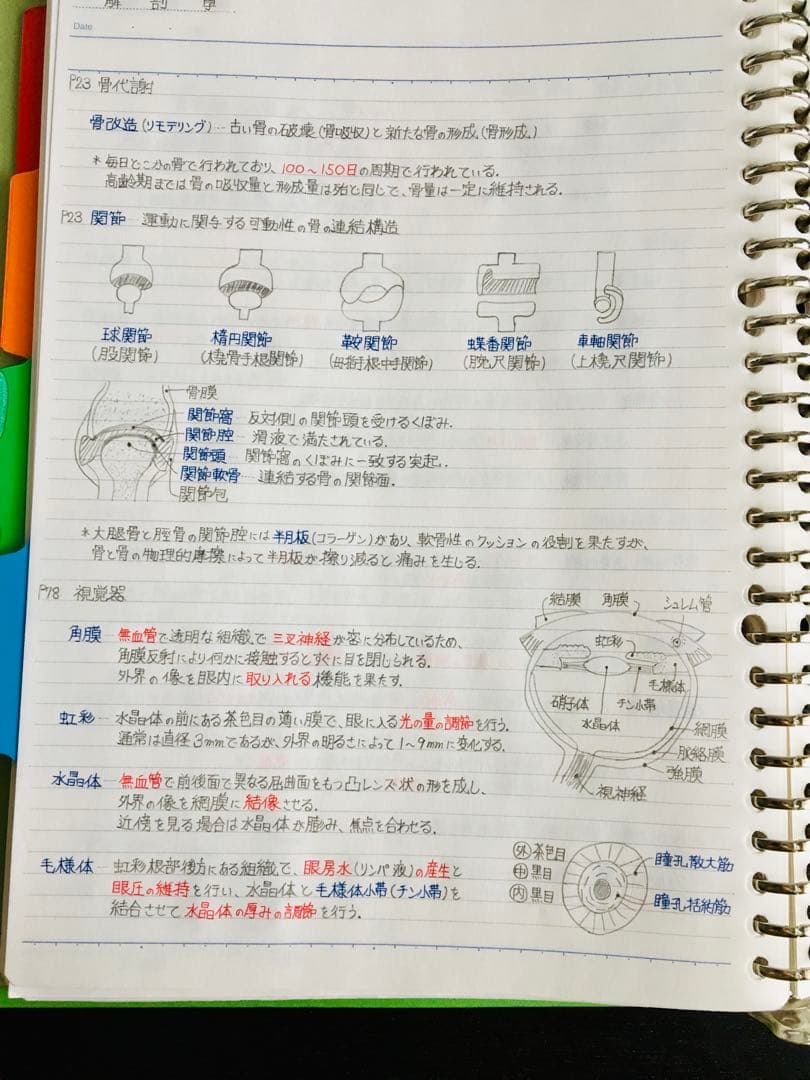 解剖学
Date
P23 骨代謝
骨改造(リモデリング)…古い骨の破壊(骨吸収)と新たな骨の形成(骨形成)
*毎日どこかの骨で行われており、100〜150日の周期で行われている.
高齢期までは骨の吸収量と形成量は殆ど同じで、骨量は一定に維持される.
P23 関節…運動に関与する可動性の骨の連結構造
球関節 楕円関節 鞍関節 蝶番関節 車軸関節
(股関節) (橈骨手根関節) (母指手根中手関節) (腕尺関節) (上橈尺関節)
骨膜
関節窩 反対側の関節頭を受けるくぼみ.
関節腔…滑液で満たされている.
関節頭…関節窩のくぼみに一致する突起.
関節軟骨…連結する骨の関節面.
関節包
*大腿骨と脛骨の関節腔には半月板(コラーゲン)があり、軟骨性のクッションの役割を果たすが、
骨と骨の物理的摩擦によって半月板が擦り減ると痛みを生じる.
P78 視覚器
角膜…無血管で透明な組織で三叉神経が密に分布しているため、
角膜反射により何かに接触するとすぐに目を閉じられる.
外界の像を眼内に取り入れる機能を果たす.
虹彩…水晶体の前にある茶色目の薄い膜で、眼に入る光の量の調節を行う.
通常は直径3mmであるが、外界の明るさによって1〜9mmに変化する.
水晶体…無血管で前後面で異なる屈曲面をもつ凸レンズ状の形を成し、
外界の像を網膜に結像させる.
近傍を見る場合は水晶体が膨み、焦点を合わせる.
毛様体…虹彩根部後方にある組織で、眼房水(リンパ液)の産生と
眼圧の維持を行い、水晶体と毛様体小帯(チン小帯)を
結合させて水晶体の厚みの調節を行う.
結膜 角膜 シュレム管
虹彩
毛様体
硝子体 チン小帯
水晶体
網膜
脈絡膜
強膜
視神経
外 茶色目
中 黒目
内 黒目
瞳孔散大筋
瞳孔括約筋